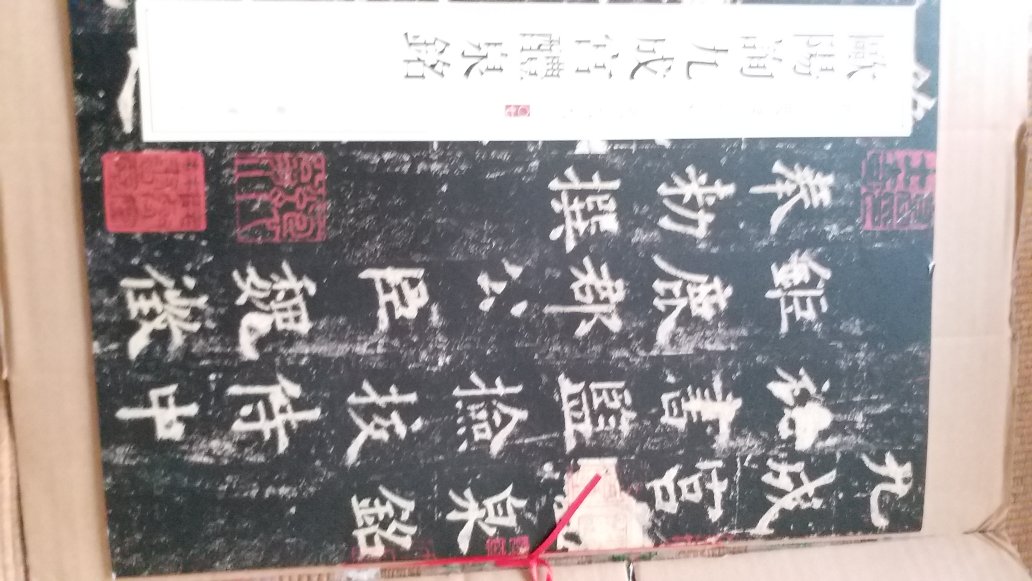 歐陽詢九成宮醴泉銘
九成宮泉銘
祕書監撿挍侍中
鉅鹿郡公臣魏徵
奉勑撰